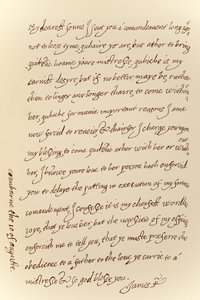 My deare Sonne I sent you a comandement long agoe
not to loose tyme, quhaire ye are, but ather to bring
quiklie hoame youre mistresse, quhiche is my
earnist desyre, but if no better maye be, rather
then to linger any longer thaire, to come without
her, quhiche for manie important reasons I ame
now forcid to renew & thairfor I charge you upon
my blessing to come quiklie ather with her or without
her, I knowe youre love to her person hath enforcid
you to delaye the putting in execution of my former
comandement, I confesse it is my cheifest worldlie
joye, that ye love her, but the necessitie of my affaires
enforcith me to tell you, that ye must præferre the
obedience to a father to the love ye carrie to a
mistresse & so god blesse you.
James R
cranborne the 10 of auguste.